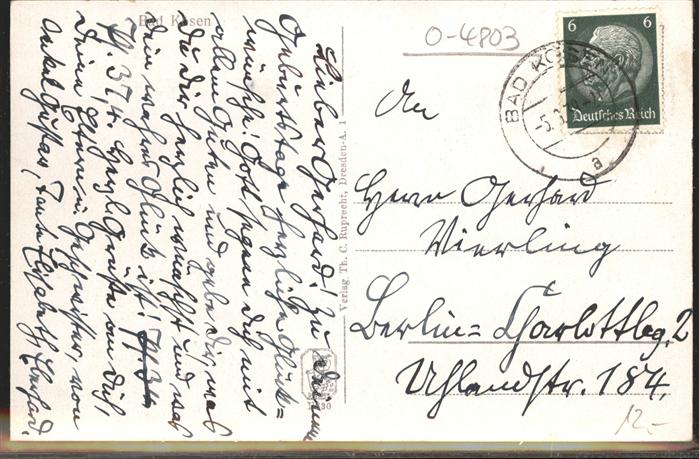 Bad Kösen
O-4803
Lieber Gerhard! Zu Deinem
Geburtstage herzliche Glück=
wünsche! Gott segne Dich mit
allem Guten und gebe Dir, was
Du Dir herzlich wünschst und was
Dein wahres Glück ist!
Ps. 37,4. Herzl. Grüße an Dich,
Deine Eltern u. Geschwister, von
Onkel Gustav, Tante Elisabeth, Eberhard.
Verlag Th. C. Ruprecht, Dresden-A. 1
6 6
Deutsches Reich
BAD KÖSEN
a
An
Herrn Gerhard
Vierling
Berlin=Charlottbg. 2
Uhlandstr. 184.
12.-